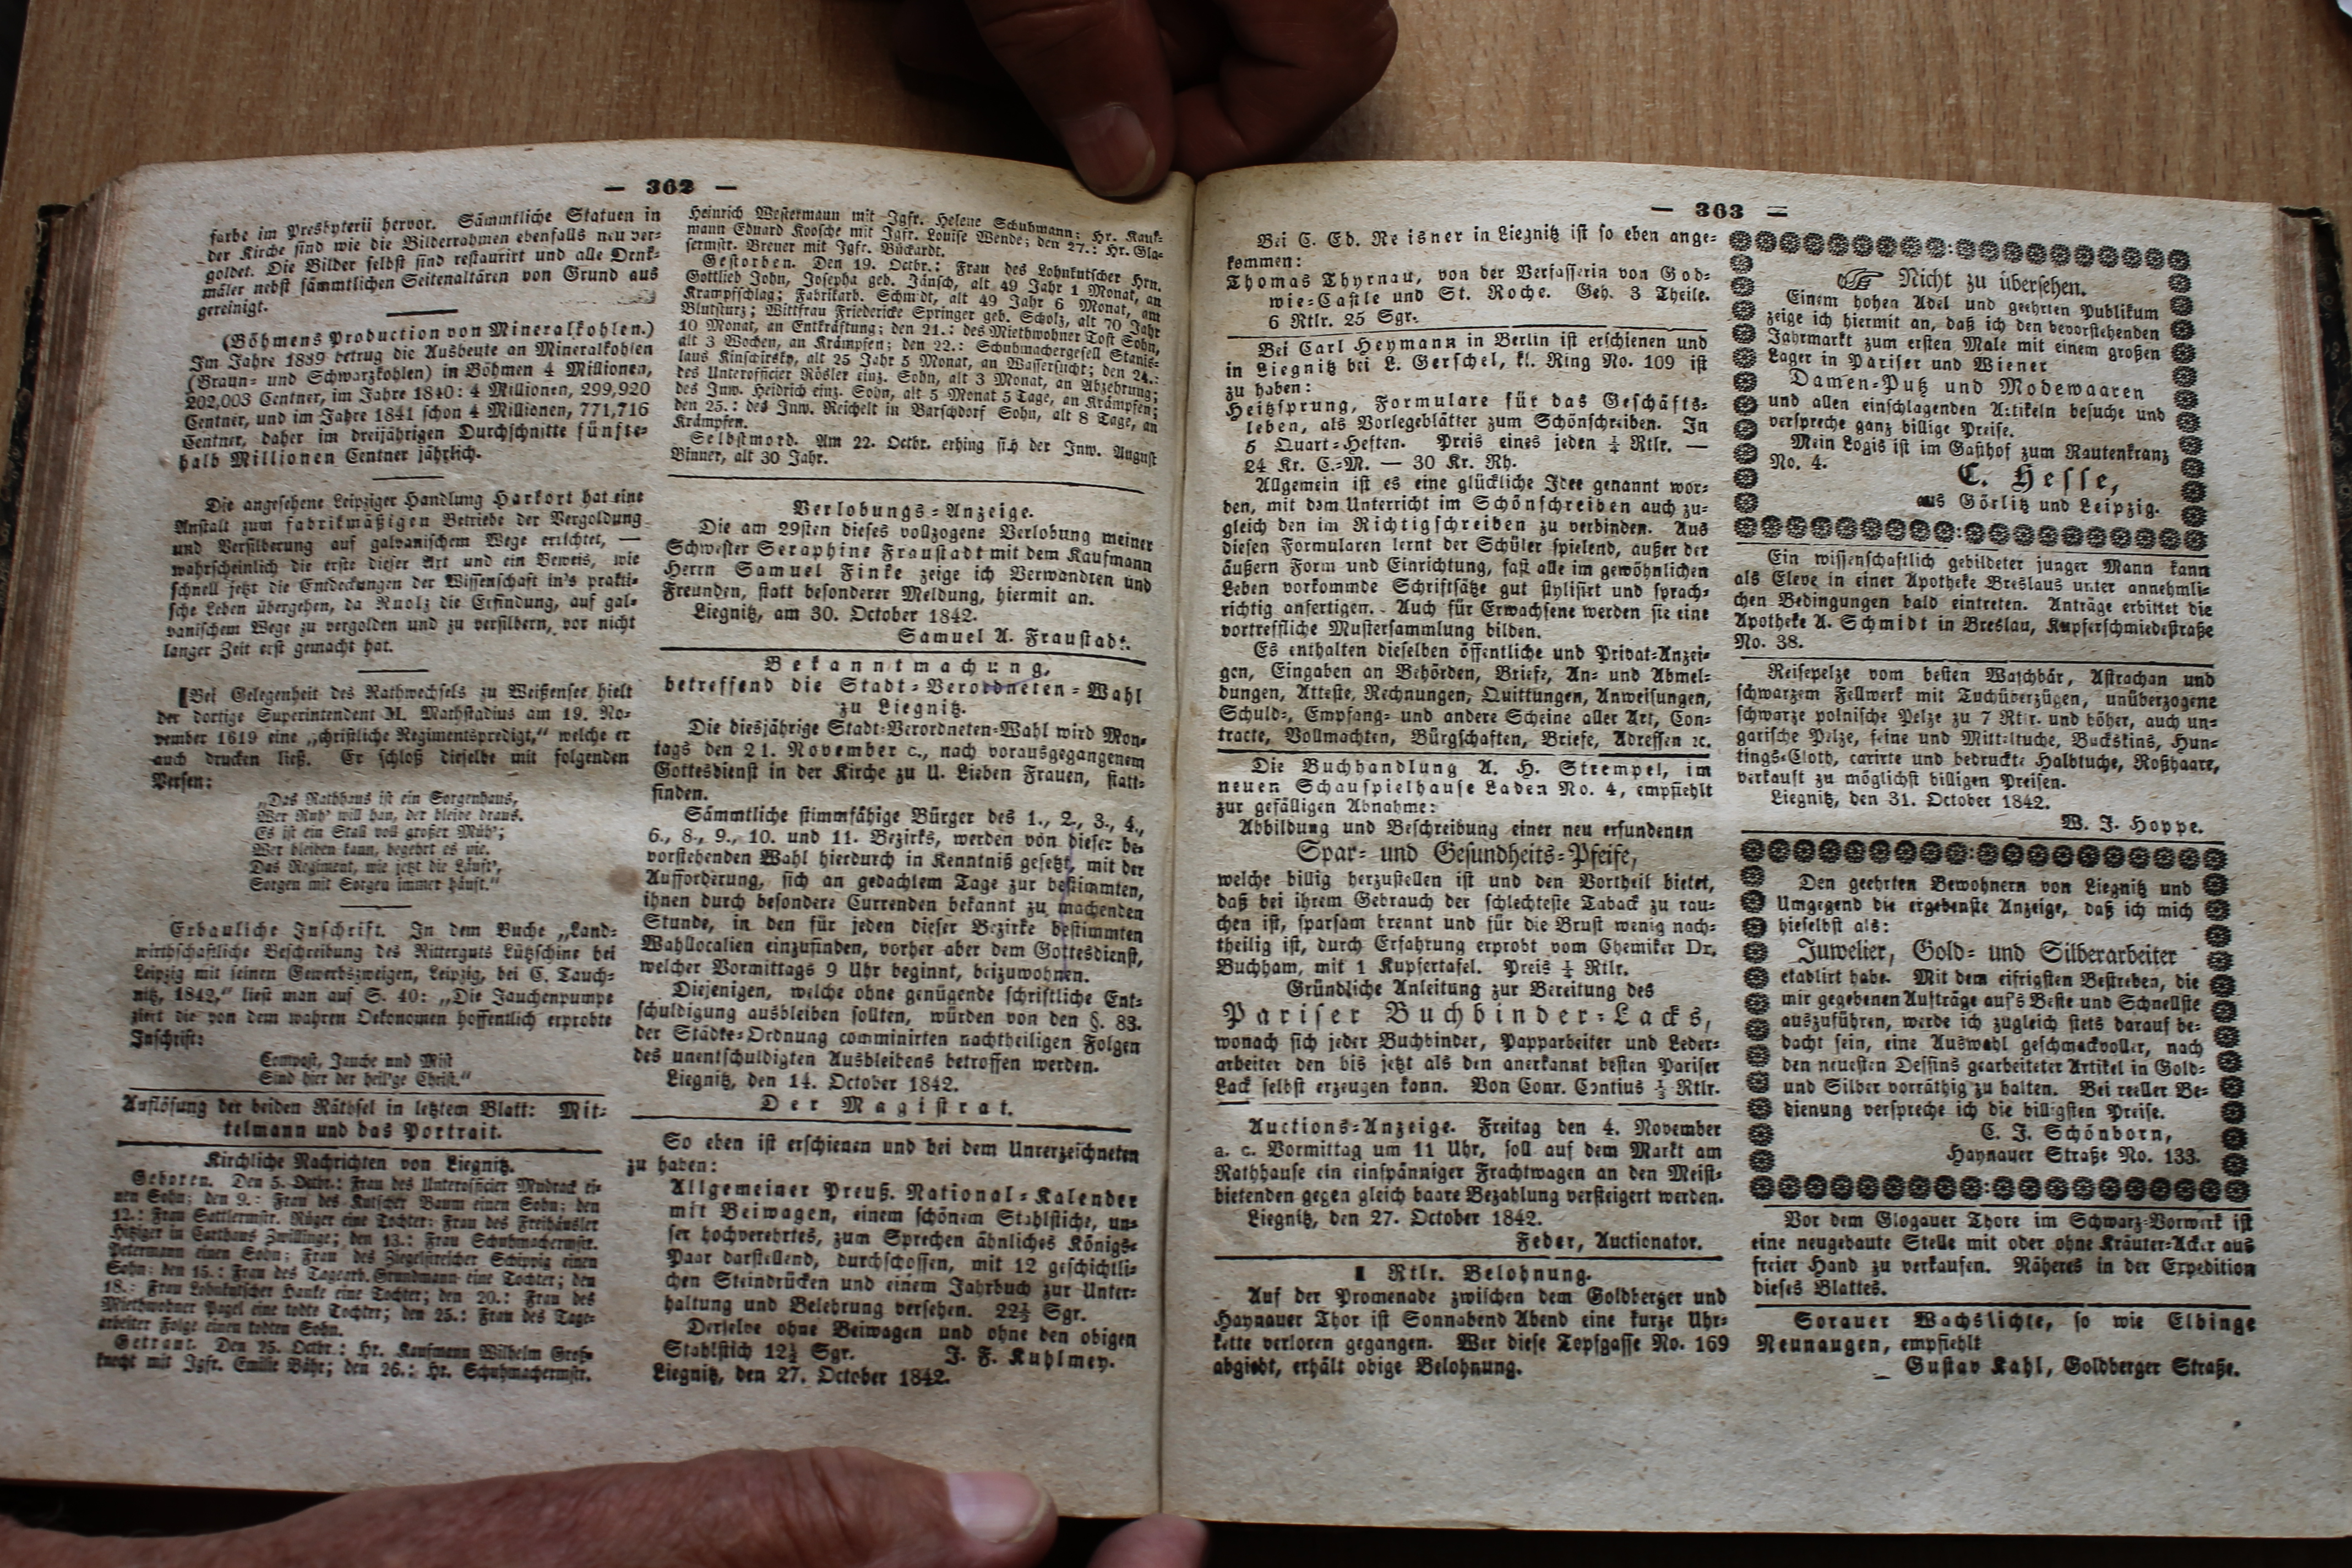 — 362 —
farbe im Presbyterii hervor. Sämmtliche Statuen in
der Kirche sind wie die Bilderrahmen ebenfalls neu ver-
goldet. Die Bilder selbst sind restaurirt und alle Denk-
mäler nebst sämmtlichen Seitenaltären von Grund aus
gereinigt.
(Böhmens Production von Mineralkohlen.)
Im Jahre 1839 betrug die Ausbeute an Mineralkohlen
(Braun- und Schwarzkohlen) in Böhmen 4 Millionen,
202,003 Centner, im Jahre 1840: 4 Millionen, 299,920
Centner, und im Jahre 1841 schon 4 Millionen, 771,716
Centner, daher im dreijährigen Durchschnitte fünfte-
halb Millionen Centner jährlich.
Die angesehene Leipziger Handlung Harkort hat eine
Anstalt zum fabrikmäßigen Betriebe der Vergoldung
und Versilberung auf galvanischem Wege errichtet, —
wahrscheinlich die erste dieser Art und ein Beweis, wie
schnell jetzt die Entdeckungen der Wissenschaft in's prakti-
sche Leben übergehen, da Ruolz die Erfindung, auf gal-
vanischem Wege zu vergolden und zu versilbern, vor nicht
langer Zeit erst gemacht hat.
Bei Gelegenheit des Rathwechsels zu Weißensee hielt
der dortige Superintendent M. Mathstadius am 19. No-
vember 1619 eine „christliche Regimentspredigt,“ welche er
auch drucken ließ. Er schloß dieselbe mit folgenden
Versen:
„Das Rathhaus ist ein Sorgenhaus,
Wer Ruh' will han, der bleibe draus.
Es ist ein Stall voll großer Müh';
Wer bleiben kann, begehrt es nie.
Das Regiment, wie jetzt die Läuft',
Sorgen mit Sorgen immer häuft.“
Erbauliche Inschrift. In dem Buche „Land-
wirthschaftliche Beschreibung des Ritterguts Lützschine bei
Leipzig mit seinen Gewerbszweigen, Leipzig, bei C. Tauch-
nitz, 1842,“ liest man auf S. 40: „Die Jauchenpumpe
ziert die von dem wahren Oekonomen hoffentlich erprobte
Inschrift:
Compost, Jauche und Mist
Sind hier der heil'ge Christ.“
Auflösung der beiden Räthsel in letztem Blatt: Mit-
telmann und das Portrait.
Kirchliche Nachrichten von Liegnitz.
Geboren. Den 5. Octbr.: Frau des Unterofficier Mudrack ei-
nen Sohn; den 9.: Frau des Kutscher Baum einen Sohn; den
12.: Frau Sattlermstr. Rüger eine Tochter; Frau des Freihäusler
Hitziger in Carthaus Zwillinge; den 13.: Frau Schuhmachermstr.
Petermann einen Sohn; Frau des Ziegelstreicher Schippig einen
Sohn; den 15.: Frau des Tagearb. Grundmann eine Tochter; den
18.: Frau Lohnkutscher Hanke eine Tochter; den 20.: Frau des
Miethwohner Pagel eine todte Tochter; den 25.: Frau des Tage-
arbeiter Folge einen todten Sohn.
Getraut. Den 25. Octbr.: Hr. Kaufmann Wilhelm Groß-
knecht mit Jgfr. Emilie Bähr; den 26.: Hr. Schuhmachermstr.
Heinrich Westermann mit Jgfr. Helene Schuhmann; Hr. Kauf-
mann Eduard Koosche mit Jgfr. Louise Wende; den 27.: Hr. Gla-
sermstr. Breuer mit Jgfr. Bückardt.
Gestorben. Den 19. Octbr.: Frau des Lohnkutscher Hrn.
Gottlieb John, Josepha geb. Jänsch, alt 49 Jahr 1 Monat, an
Krampfschlag; Fabrikarb. Schmidt, alt 49 Jahr 6 Monat, am
Blutsturz; Wittfrau Friedericke Springer geb. Scholz, alt 70 Jahr
10 Monat, an Entkräftung; den 21.: des Miethwohner Tost Sohn,
alt 3 Wochen, an Krämpfen; den 22.: Schuhmachergesell Stanis-
laus Kinschirsky, alt 25 Jahr 5 Monat, an Wassersucht; den 24.:
des Unterofficier Rösler einz. Sohn, alt 3 Monat, an Abzehrung;
des Inw. Heidrich einz. Sohn, alt 5 Monat 5 Tage, an Krämpfen;
den 25.: des Inw. Reichelt in Barschdorf Sohn, alt 8 Tage, an
Krämpfen.
Selbstmord. Am 22. Octbr. erhing sich der Inw. August
Binner, alt 30 Jahr.
Verlobungs-Anzeige.
Die am 29sten dieses vollzogene Verlobung meiner
Schwester Seraphine Fraustadt mit dem Kaufmann
Herrn Samuel Finke zeige ich Verwandten und
Freunden, statt besonderer Meldung, hiermit an.
Liegnitz, am 30. October 1842.
Samuel A. Fraustadt.
Bekanntmachung,
betreffend die Stadt-Verordneten-Wahl
zu Liegnitz.
Die diesjährige Stadt-Verordneten-Wahl wird Mon-
tags den 21. November c., nach vorausgegangenem
Gottesdienst in der Kirche zu U. Lieben Frauen, statt-
finden.
Sämmtliche stimmfähige Bürger des 1., 2., 3., 4.,
6., 8., 9., 10. und 11. Bezirks, werden von dieser be-
vorstehenden Wahl hierdurch in Kenntniß gesetzt, mit der
Aufforderung, sich an gedachtem Tage zur bestimmten,
ihnen durch besondere Currenden bekannt zu machenden
Stunde, in den für jeden dieser Bezirke bestimmten
Wahllocalien einzufinden, vorher aber dem Gottesdienst,
welcher Vormittags 9 Uhr beginnt, beizuwohnen.
Diejenigen, welche ohne genügende schriftliche Ent-
schuldigung ausbleiben sollten, würden von den §. 83.
der Städte-Ordnung comminirten nachtheiligen Folgen
des unentschuldigten Ausbleibens betroffen werden.
Liegnitz, den 14. October 1842.
Der Magistrat.
So eben ist erschienen und bei dem Unterzeichneten
zu haben:
Allgemeiner Preuß. National-Kalender
mit Beiwagen, einem schönem Stahlstiche, un-
ser hochverehrtes, zum Sprechen ähnliches Königs-
Paar darstellend, durchschossen, mit 12 geschichtli-
chen Steindrücken und einem Jahrbuch zur Unter-
haltung und Belehrung versehen. 22½ Sgr.
Derselbe ohne Beiwagen und ohne den obigen
Stahlstich 12½ Sgr. J. F. Kuhlmey.
Liegnitz, den 27. October 1842.
— 363 —
Bei C. Ed. Reisner in Liegnitz ist so eben ange-
kommen:
Thomas Thyrnau, von der Verfasserin von God-
wie-Castle und St. Roche. Geh. 3 Theile.
6 Rtlr. 25 Sgr.
Bei Carl Heymann in Berlin ist erschienen und
in Liegnitz bei L. Gerschel, kl. Ring No. 109 ist
zu haben:
Heitzsprung, Formulare für das Geschäfts-
leben, als Vorlegeblätter zum Schönschreiben. In
5 Quart-Heften. Preis eines jeden ¼ Rtlr. —
24 Kr. C.-M. — 30 Kr. Rh.
Allgemein ist es eine glückliche Idee genannt wor-
den, mit dem Unterricht im Schönschreiben auch zu-
gleich den im Richtigschreiben zu verbinden. Aus
diesen Formularen lernt der Schüler spielend, außer der
äußern Form und Einrichtung, fast alle im gewöhnlichen
Leben vorkommde Schriftsätze gut stylisirt und sprach-
richtig anfertigen. Auch für Erwachsene werden sie eine
vortreffliche Mustersammlung bilden.
Es enthalten dieselben öffentliche und Privat-Anzei-
gen, Eingaben an Behörden, Briefe, An- und Abmel-
dungen, Atteste, Rechnungen, Quittungen, Anweisungen,
Schuld-, Empfang- und andere Scheine aller Art, Con-
tracte, Vollmachten, Bürgschaften, Briefe, Adressen ꝛc.
Die Buchhandlung A. H. Strempel, im
neuen Schauspielhause Laden No. 4, empfiehlt
zur gefälligen Abnahme:
Abbildung und Beschreibung einer neu erfundenen
Spar- und Gesundheits-Pfeife,
welche billig herzustellen ist und den Vortheil bietet,
daß bei ihrem Gebrauch der schlechteste Taback zu rau-
chen ist, sparsam brennt und für die Brust wenig nach-
theilig ist, durch Erfahrung erprobt vom Chemiker Dr.
Buchham, mit 1 Kupfertafel. Preis ¼ Rtlr.
Gründliche Anleitung zur Bereitung des
Pariser Buchbinder-Lacks,
wonach sich jeder Buchbinder, Papparbeiter und Leder-
arbeiter den bis jetzt als den anerkannt besten Pariser
Lack selbst erzeugen kann. Von Conr. Contius ⅓ Rtlr.
Auctions-Anzeige. Freitag den 4. November
a. c. Vormittag um 11 Uhr, soll auf dem Markt am
Rathhause ein einspänniger Frachtwagen an den Meist-
bietenden gegen gleich baare Bezahlung versteigert werden.
Liegnitz, den 27. October 1842.
Feder, Auctionator.
1 Rtlr. Belohnung.
Auf der Promenade zwischen dem Goldberger und
Haynauer Thor ist Sonnabend Abend eine kurze Uhr-
kette verloren gegangen. Wer diese Topfgasse No. 169
abgiebt, erhält obige Belohnung.
☞ Nicht zu übersehen.
Einem hohen Adel und geehrten Publikum
zeige ich hiermit an, daß ich den bevorstehenden
Jahrmarkt zum ersten Male mit einem großen
Lager in Pariser und Wiener
Damen-Putz und Modewaaren
und allen einschlagenden Artikeln besuche und
verspreche ganz billige Preise.
Mein Logis ist im Gasthof zum Rautenkranz
No. 4.
C. Hesse,
aus Görlitz und Leipzig.
Ein wissenschaftlich gebildeter junger Mann kann
als Eleve in einer Apotheke Breslaus unter annehmli-
chen Bedingungen bald eintreten. Anträge erbittet die
Apotheke A. Schmidt in Breslau, Kupferschmiedestraße
No. 38.
Reisepelze vom besten Waschbär, Astrachan und
schwarzem Fellwerk mit Tuchüberzügen, unüberzogene
schwarze polnische Pelze zu 7 Rtlr. und höher, auch un-
garische Pelze, feine und Mitteltuche, Buckskins, Hun-
tings-Cloth, carirte und bedruckte Halbtuche, Roßhaare,
verkauft zu möglichst billigen Preisen.
Liegnitz, den 31. October 1842.
W. J. Hoppe.
Den geehrten Bewohnern von Liegnitz und
Umgegend die ergebenste Anzeige, daß ich mich
hieselbst als:
Juwelier, Gold- und Silberarbeiter
etablirt habe. Mit dem eifrigsten Bestreben, die
mir gegebenen Aufträge auf's Beste und Schnellste
auszuführen, werde ich zugleich stets darauf be-
dacht sein, eine Auswahl geschmackvoller, nach
den neuesten Dessins gearbeiteter Artikel in Gold-
und Silber vorräthig zu halten. Bei reeller Be-
dienung verspreche ich die billigsten Preise.
C. J. Schönborn,
Haynauer Straße No. 133.
Vor dem Glogauer Thore im Schwarz-Vorwerk ist
eine neugebaute Stelle mit oder ohne Kräuter-Acker aus
freier Hand zu verkaufen. Näheres in der Expedition
dieses Blattes.
Sorauer Wachslichte, so wie Elbinge
Neunaugen, empfiehlt
Gustav Kahl, Goldberger Straße.